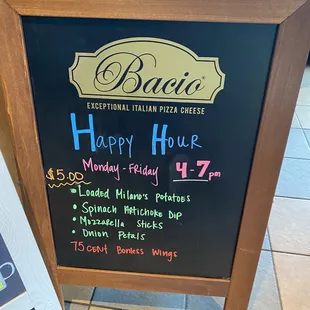 Bacio®
EXCEPTIONAL ITALIAN PIZZA CHEESE
Happy Hour
Monday - Friday 4-7pm
$5.00
• Loaded Milano's Potatoes
• Spinach Artichoke Dip
• Mozzarella Sticks
• Onion Petals
75 cent Boneless Wings